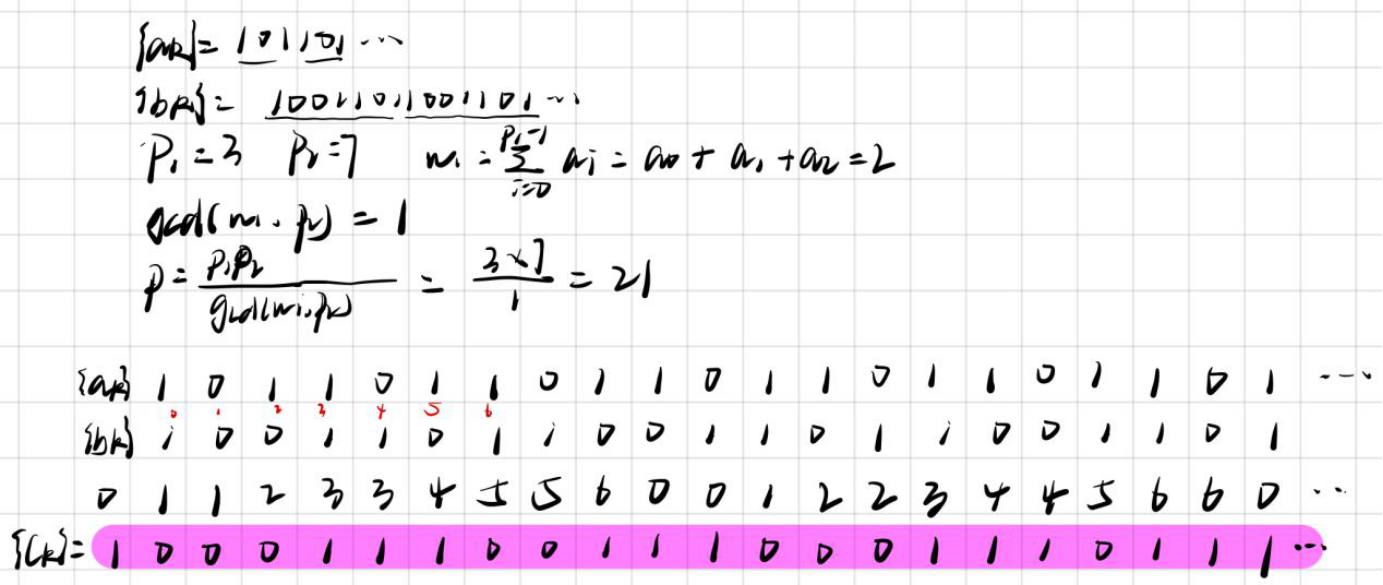 {ak}= 101101 ···
{bk}= 10011011001101 ···
P₁=3 P₂=7 w₁ = Σ_{i=0}^{P₁-1} ai = a0 + a1 + a2 = 2
gcd(w₁, p₂) = 1
P = P₁P₂ / gcd(w₁,p₂) = 3×7 / 1 = 21
{ak} 1 0 1 1 0 1 1 0 1 1 0 1 1 0 1 1 0 1 1 0 1 ···
0 1 2 3 4 5 6
{bk} 1 0 0 1 1 0 1 1 0 0 1 1 0 1 1 0 0 1 1 0 1
0 1 1 2 3 3 4 5 5 6 0 0 1 2 2 3 4 4 5 6 6 0 ··
{Ck}= 1 0 0 0 1 1 1 0 0 1 1 1 0 0 0 1 1 1 0 1 1 1 ···